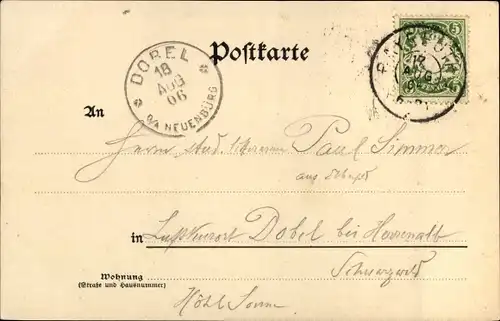 Postkarte
DOBEL
18
AUG
06
O/A NEUENBÜRG
5
17
AUG
An
Herrn stud. Paul Simmer
aus
in Luftkurort Dobel bei Herrenalb
Schwarzwald
Wohnung
(Straße und Hausnummer)
Hôtel Sonne